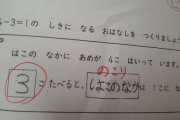 4-3=1の しきに なる おはなしを つくりましょ
はこの なかに あめが 4こ はいって います。
のこり
3 こ たべると、 はこのなか は 1こに な